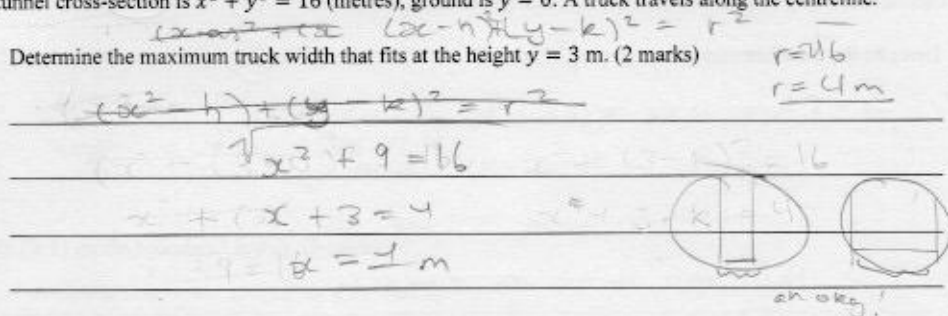 tunnel cross-section is x² + y² = 16 (metres), ground is y = 0. A truck travels along the centreline.
(x-h)²+(y-k)² = r²
Determine the maximum truck width that fits at the height y = 3 m. (2 marks)
r=√16
r=4m
(x²-h)+(y-k)²=r²
√x² + 9 = 16
x + 3 = 4
x = 1 m
ah okay!